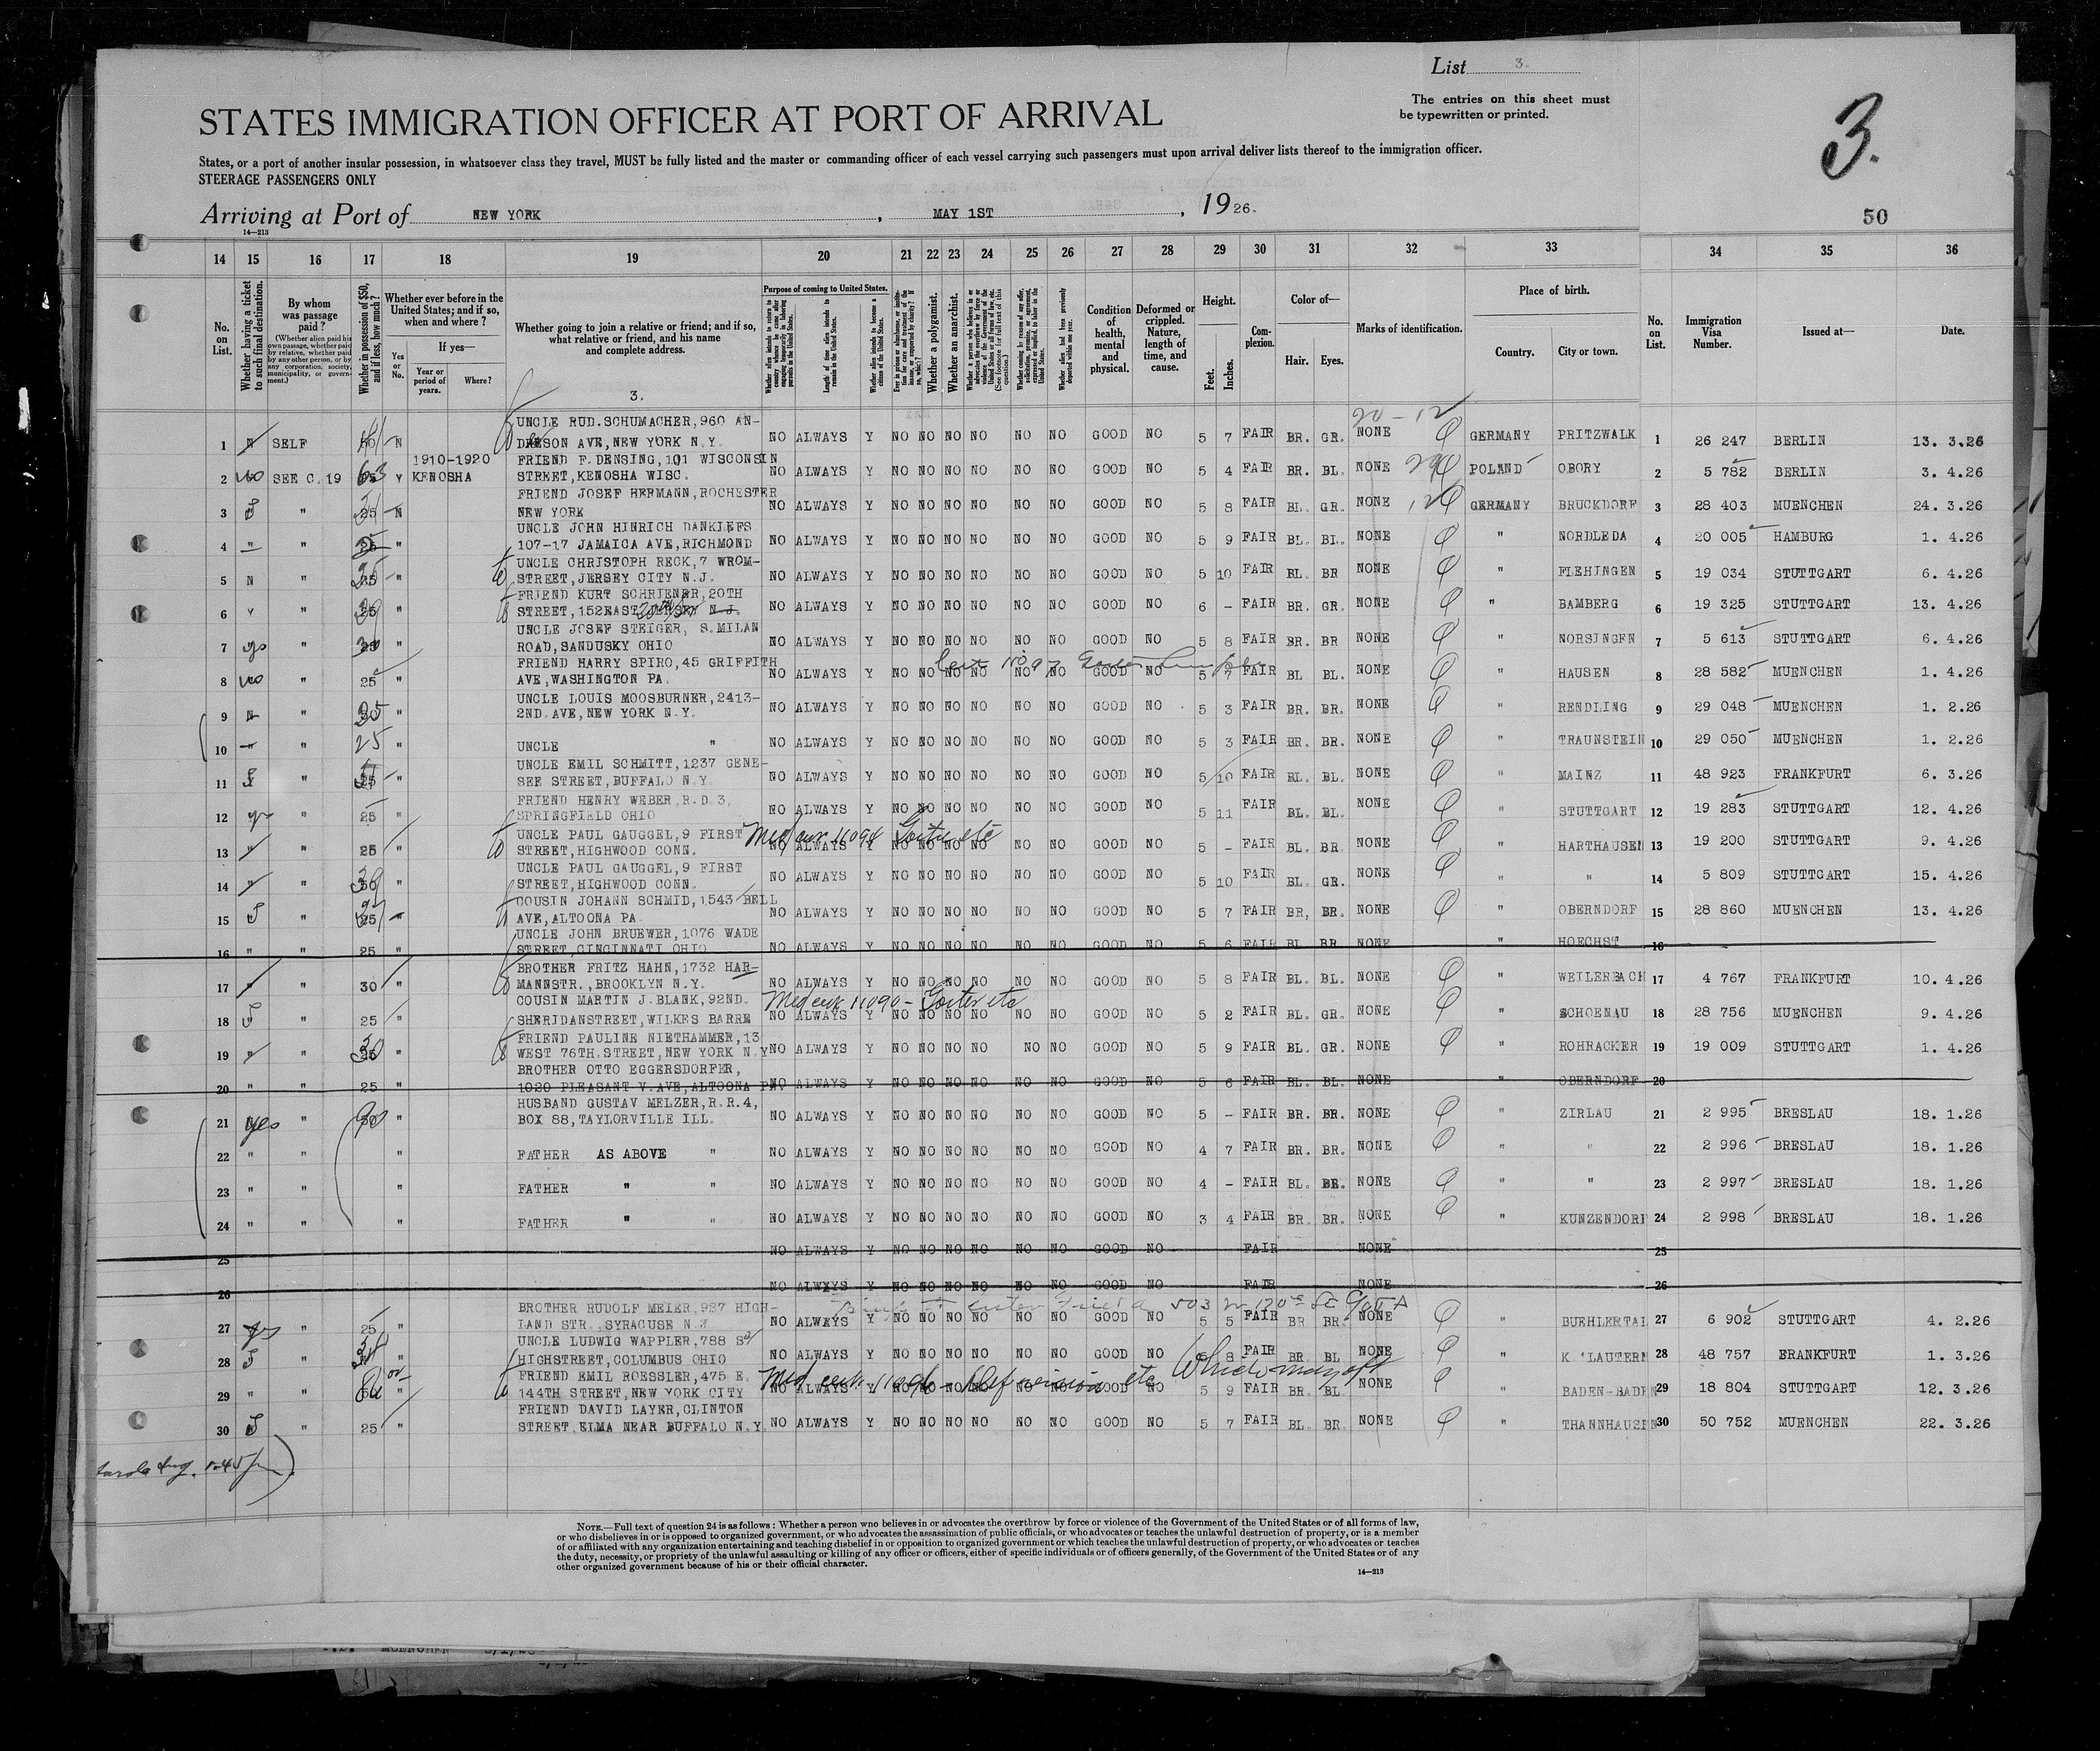 List 3.
STATES IMMIGRATION OFFICER AT PORT OF ARRIVAL
The entries on this sheet must
be typewritten or printed.
3.
States, or a port of another insular possession, in whatsoever class they travel, MUST be fully listed and the master or commanding officer of each vessel carrying such passengers must upon arrival deliver lists thereof to the immigration officer.
STEERAGE PASSENGERS ONLY
Arriving at Port of NEW YORK, MAY 1ST, 1926.
50
14—213
14 15 16 17 18 19 20 21 22 23 24 25 26 27 28 29 30 31 32 33 34 35 36
No. on List.
Whether having a ticket to such final destination.
By whom was passage paid?
(Whether alien paid his own passage, whether paid by relative, whether paid by any other person, or by any corporation, society, municipality, or government.)
Whether in possession of $50, and if less, how much?
Whether ever before in the United States; and if so, when and where?
Yes or No.
If yes—
Year or period of years.
Where?
Whether going to join a relative or friend; and if so, what relative or friend, and his name and complete address.
3.
Purpose of coming to United States.
Length of time alien intends to remain in the United States.
Whether alien intends to become a citizen of the United States.
Whether a polygamist.
Whether an anarchist.
Condition of health, mental and physical.
Deformed or crippled. Nature, length of time, and cause.
Height.
Feet.
Inches.
Complexion.
Color of—
Hair.
Eyes.
Marks of identification.
Place of birth.
Country.
City or town.
No. on List.
Immigration Visa Number.
Issued at—
Date.
20 - 12
UNCLE RUD.SCHUMACHER,960 AN-
1 N SELF N DERSON AVE,NEW YORK N.Y. NO ALWAYS Y NO NO NO NO NO NO GOOD NO 5 7 FAIR BR. GR. NONE GERMANY PRITZWALK 1 26 247 BERLIN 13. 3.26
1910-1920 FRIEND F.DENSING,101 WISCONSIN
2 no SEE C.19 63 Y KENOSHA STREET,KENOSHA WISC. NO ALWAYS Y NO NO NO NO NO NO GOOD NO 5 4 FAIR BR. BL. NONE POLAND OBORY 2 5 782 BERLIN 3. 4.26
FRIEND JOSEF HERMANN,ROCHESTER
3 " 25 N NEW YORK NO ALWAYS Y NO NO NO NO NO NO GOOD NO 5 8 FAIR BL. GR. NONE GERMANY BRUCKDORF 3 28 403 MUENCHEN 24. 3.26
UNCLE JOHN HINRICH DANKLEFS
4 " " 25 " 107-17 JAMAICA AVE,RICHMOND NO ALWAYS Y NO NO NO NO NO NO GOOD NO 5 9 FAIR BL. BL. NONE " NORDLEDA 4 20 005 HAMBURG 1. 4.26
UNCLE CHRISTOPH RECK,7 WROM-
5 N " 25 " STREET,JERSEY CITY N.J. NO ALWAYS Y NO NO NO NO NO NO GOOD NO 5 10 FAIR BL. BR NONE " FLEHINGEN 5 19 034 STUTTGART 6. 4.26
FRIEND KURT SCHRIENER,20TH
6 " " " STREET,152EAST JERSEY N.J. NO ALWAYS Y NO NO NO NO NO NO GOOD NO 6 - FAIR BR. GR. NONE " BAMBERG 6 19 325 STUTTGART 13. 4.26
UNCLE JOSEF STEIGER, S.MILAN
7 yes " 30 " ROAD,SANDUSKY OHIO NO ALWAYS Y NO NO NO NO NO NO GOOD NO 5 8 FAIR BR. BR NONE " NORSINGEN 7 5 613 STUTTGART 6. 4.26
FRIEND HARRY SPIRO,45 GRIFFITH
8 no " 25 " AVE,WASHINGTON PA. NO ALWAYS Y NO NO NO NO NO NO GOOD NO 5 7 FAIR BL BL. NONE " HAUSEN 8 28 582 MUENCHEN 1. 4.26
UNCLE LOUIS MOOSBURNER,2413-
9 N " " 2ND.AVE,NEW YORK N.Y. NO ALWAYS Y NO NO NO NO NO NO GOOD NO 5 3 FAIR BR. BR. NONE " RENDLING 9 29 048 MUENCHEN 1. 2.26
10 " " 25 " UNCLE " NO ALWAYS Y NO NO NO NO NO NO GOOD NO 5 3 FAIR BR. BR. NONE " TRAUNSTEIN 10 29 050 MUENCHEN 1. 2.26
UNCLE EMIL SCHMITT,1237 GENE-
11 " 25 " SEE STREET,BUFFALO N.Y. NO ALWAYS Y NO NO NO NO NO NO GOOD NO 5 10 FAIR BL. BL. NONE " MAINZ 11 48 923 FRANKFURT 6. 3.26
FRIEND HENRY WEBER,R.D.3,
12 " 25 " SPRINGFIELD OHIO NO ALWAYS Y NO NO NO NO NO NO GOOD NO 5 11 FAIR BL. BL. NONE " STUTTGART 12 19 283 STUTTGART 12. 4.26
UNCLE PAUL GAUGGEL,9 FIRST Med cert 11094 Goitre etc
13 " " 25 " STREET,HIGHWOOD CONN. NO ALWAYS Y NO NO NO NO NO NO GOOD NO 5 - FAIR BL. BR. NONE " HARTHAUSEN 13 19 200 STUTTGART 9. 4.26
UNCLE PAUL GAUGGEL,9 FIRST
14 " " " STREET,HIGHWOOD CONN. NO ALWAYS Y NO NO NO NO NO NO GOOD NO 5 10 FAIR BL. GR. NONE " " 14 5 809 STUTTGART 15. 4.26
COUSIN JOHANN SCHMID,1543 BELL
15 " 25 " AVE,ALTOONA PA. NO ALWAYS Y NO NO NO NO NO NO GOOD NO 5 7 FAIR BR, BR. NONE " OBERNDORF 15 28 860 MUENCHEN 13. 4.26
UNCLE JOHN BRUEWER,1076 WADE
16 " " 25 " STREET,CINCINNATI OHIO NO ALWAYS Y NO NO NO NO NO NO GOOD NO 5 6 FAIR BL BR NONE " HOECHST 16
BROTHER FRITZ HAHN,1732 HAR-
17 " " 30 " MANNSTR.,BROOKLYN N.Y. NO ALWAYS Y NO NO NO NO NO NO GOOD NO 5 8 FAIR BL. BL. NONE " WEILERBACH 17 4 767 FRANKFURT 10. 4.26
COUSIN MARTIN J.BLANK,92ND. Med cert 11090 - Goiter etc
18 " 25 " SHERIDANSTREET,WILKES BARRE NO ALWAYS Y NO NO NO NO NO NO GOOD NO 5 2 FAIR BL. GR. NONE " SCHOENAU 18 28 756 MUENCHEN 9. 4.26
FRIEND PAULINE NIETHAMMER,13
19 " " " WEST 76TH.STREET,NEW YORK N.Y NO ALWAYS Y NO NO NO NO NO NO GOOD NO 5 9 FAIR BL. GR. NONE " ROHRACKER 19 19 009 STUTTGART 1. 4.26
BROTHER OTTO EGGERSDORFER,
20 " " 25 " 1020 PLEASANT V.AVE,ALTOONA PA NO ALWAYS Y NO NO NO NO NO NO GOOD NO 5 6 FAIR BL. BL. NONE " OBERNDORF 20
HUSBAND GUSTAV MELZER,R.R.4,
21 yes " " BOX 88,TAYLORVILLE ILL. NO ALWAYS Y NO NO NO NO NO NO GOOD NO 5 - FAIR BR. BR. NONE " ZIRLAU 21 2 995 BRESLAU 18. 1.26
22 " " " FATHER AS ABOVE " NO ALWAYS Y NO NO NO NO NO NO GOOD NO 4 7 FAIR BR. BR. NONE " " 22 2 996 BRESLAU 18. 1.26
23 " " " FATHER " " NO ALWAYS Y NO NO NO NO NO NO GOOD NO 4 - FAIR BL. BR. NONE " " 23 2 997 BRESLAU 18. 1.26
24 " " " FATHER " " NO ALWAYS Y NO NO NO NO NO NO GOOD NO 3 4 FAIR BR. BR. NONE " KUNZENDORF 24 2 998 BRESLAU 18. 1.26
25 NO ALWAYS Y NO NO NO NO NO NO GOOD NO FAIR NONE 25
26 NO ALWAYS Y NO NO NO NO NO NO GOOD NO FAIR NONE 26
BROTHER RUDOLF MEIER,927 HIGH-
27 yes " 25 " LAND STR.,SYRACUSE N.Y. NO ALWAYS Y NO NO NO NO NO NO GOOD NO 5 5 FAIR BR BR. NONE " BUEHLERTAL 27 6 902 STUTTGART 4. 2.26
UNCLE LUDWIG WAPPLER,788 S
28 " " HIGHSTREET,COLUMBUS OHIO NO ALWAYS Y NO NO NO NO NO NO GOOD NO 5 8 FAIR BR. BL NONE " K'LAUTERN 28 48 757 FRANKFURT 1. 3.26
FRIEND EMIL ROESSLER,475 E. Med cert 11096 Def vision etc which may aff
29 " " " 144TH STREET,NEW YORK CITY NO ALWAYS Y NO NO NO NO NO NO GOOD NO 5 9 FAIR BR. BL. NONE " BADEN-BADEN 29 18 804 STUTTGART 12. 3.26
FRIEND DAVID LAYER,CLINTON
30 " 25 " STREET,ELMA NEAR BUFFALO N.Y. NO ALWAYS Y NO NO NO NO NO NO GOOD NO 5 7 FAIR BL. BR. NONE " THANNHAUSEN 30 50 752 MUENCHEN 22. 3.26
NOTE.—Full text of question 24 is as follows: Whether a person who believes in or advocates the overthrow by force or violence of the Government of the United States or of all forms of law,
or who disbelieves in or is opposed to organized government, or who advocates the assassination of public officials, or who advocates or teaches the unlawful destruction of property, or is a member
of or affiliated with any organization entertaining and teaching disbelief in or opposition to organized government or which teaches the unlawful destruction of property, or who advocates or teaches
the duty, necessity, or propriety of the unlawful assaulting or killing of any officer or officers, either of specific individuals or of officers generally, of the Government of the United States or of any
other organized government because of his or their official character.
14—213